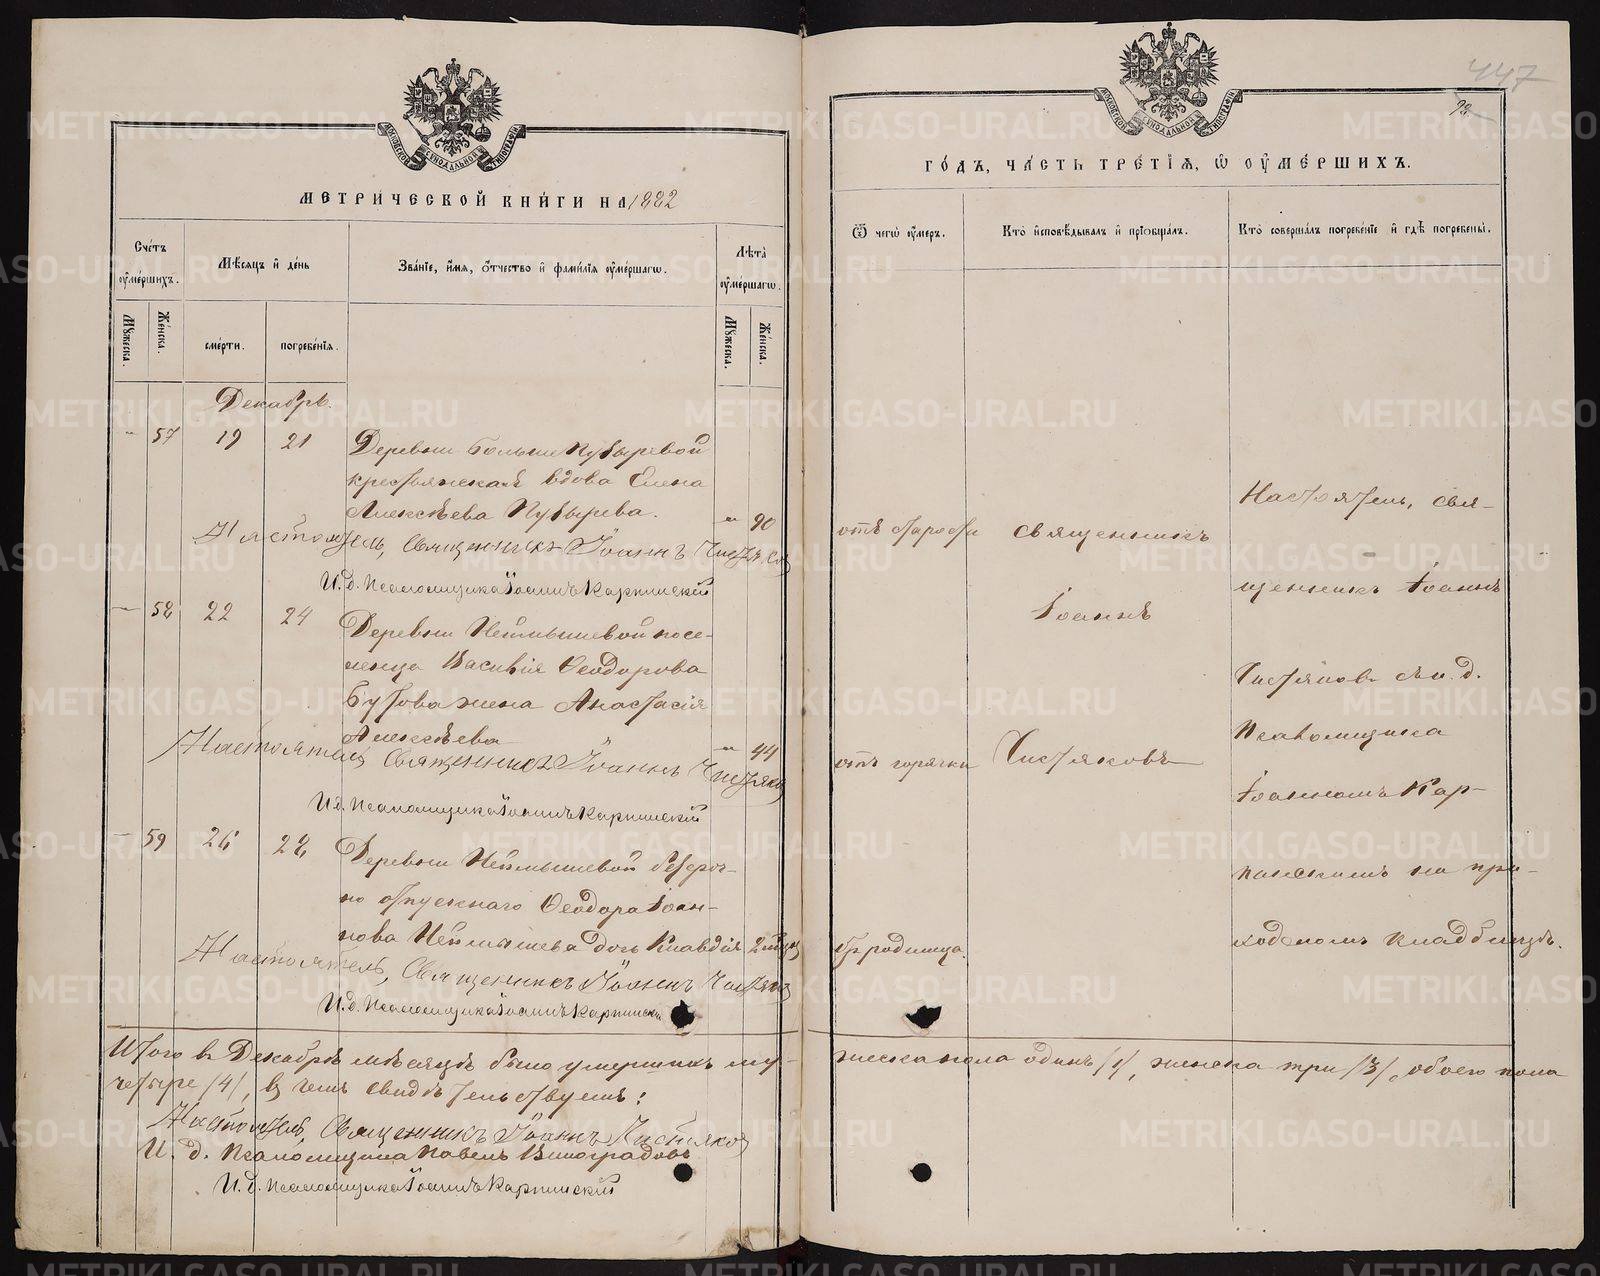 МЕТРИЧЕСКОЙ КНИГИ НА 1882
Счетъ оумершихъ.
Мѣсяцъ и день
Званіе, имя, отчество и фамилія оумершагѡ.
Лѣта оумершагѡ.
Мꙋжеска.
Женска.
смерти.
погребенія.
Мꙋжеска.
Женска.
Декабрь.
57 19 21 Деревни Больше Пузыревой
крестьянская вдова Елена
Алексѣева Пузырева. 90
Настоятель, Священникъ Іоаннъ Чистяков
И.д. Псаломщика Іоаннъ Карпинскій
58 22 24 Деревни Неймышевой посе-
ленца Василія Ѳеодорова
Бутова жена Анастасія
Алексѣева 44
Настоятель Священникъ Іоаннъ Чистяков
И.д. Псаломщика Іоаннъ Карпинскій
59 26 28 Деревни Неймышевой безсроч-
но отпускнаго Ѳеодора Іоан-
нова Неймышева дочь Клавдія
Настоятель, Священникъ Іоаннъ Чистяков
И.д. Псаломщика Іоаннъ Карпинскій
Итого въ Декабрѣ мѣсяцѣ было умершихъ му-
четыре /4/, въ чемъ свидѣтельствуемъ:
Настоятель, Священникъ Іоаннъ Чистяков
И. д. Псаломщика Павелъ Виноградовъ
И.д. Псаломщика Іоаннъ Карпинскій
447
ГОДЪ, ЧАСТЬ ТРЕТІЯ, Ѡ ОУМЕРШИХЪ.
Ѿ чегѡ оумеръ.
Кто исповѣдывалъ и пріобщалъ.
Кто совершалъ погребеніе и гдѣ погребены.
отъ старости
священникъ
Іоаннъ
Чистяковъ
отъ горячки
отъ родимца.
Настоятель, свя-
щенникъ Іоаннъ
Чистяковъ съ и.д.
Псаломщика
Іоанномъ Кар-
пинскимъ на при-
ходскомъ кладбищѣ.
жеска пола одинъ /1/, женска три /3/, обоего пола
METRIKI.GASO-URAL.RU